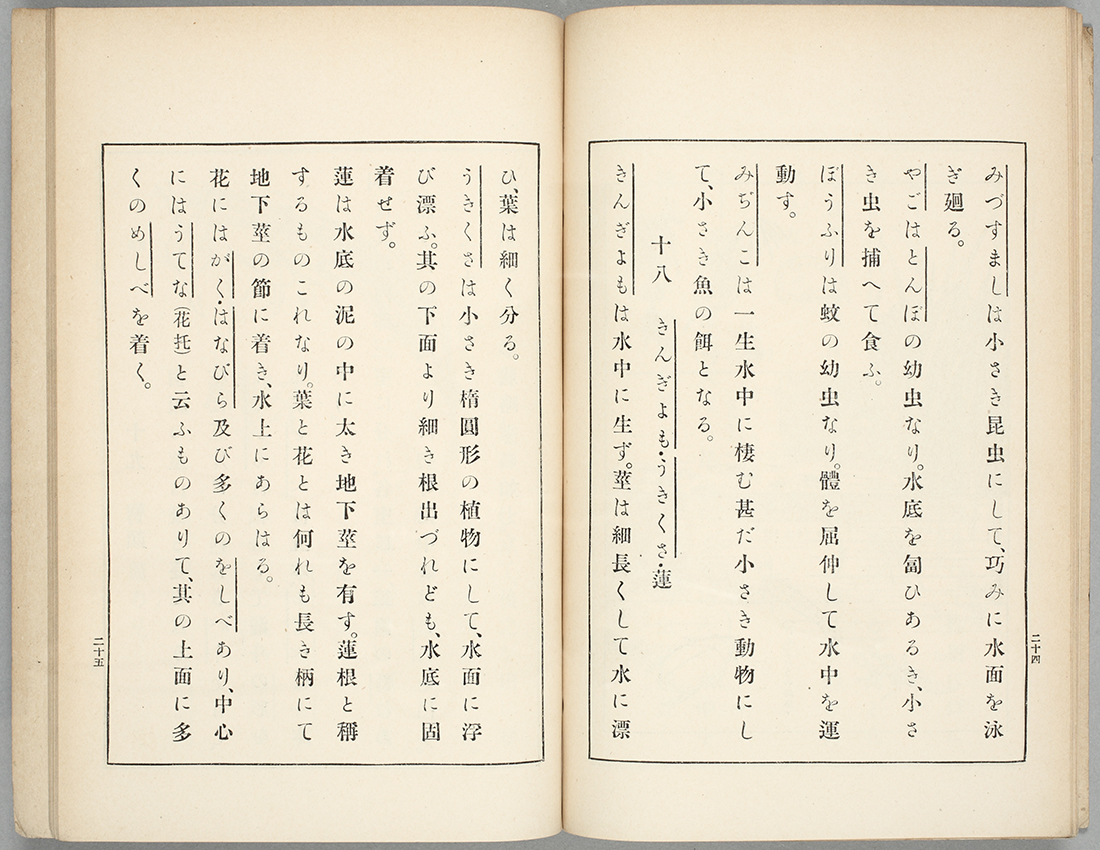 みづすましは小さき昆虫にして、巧みに水面を泳
ぎ廻る。
やごはとんぼの幼虫なり。水底を匐ひあるき、小さ
き虫を捕へて食ふ。
ぼうふりは蚊の幼虫なり。體を屈伸して水中を運
動す。
みぢんこは一生水中に棲む甚だ小さき動物にし
て、小さき魚の餌となる。
十八　きんぎよも・うきくさ・蓮
きんぎよもは水中に生ず。莖は細長くして水に漂
二十四
ひ、葉は細く分る。
うきくさは小さき楕圓形の植物にして、水面に浮
び漂ふ。其の下面より細き根出づれども、水底に固
着せず。
蓮は水底の泥の中に太き地下莖を有す。蓮根と稱
するものこれなり。葉と花とは何れも長き柄にて
地下莖の節に着き、水上にあらはる。
花にはがく・はなびら及び多くのをしべあり、中心
にはうてな（花托）と云ふものありて、其の上面に多
くのめしべを着く。
二十五